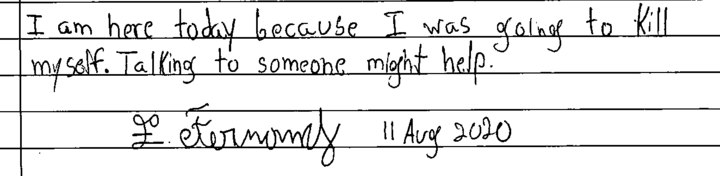 I am here today because I was going to kill
myself. Talking to someone might help.
11 Aug 2020